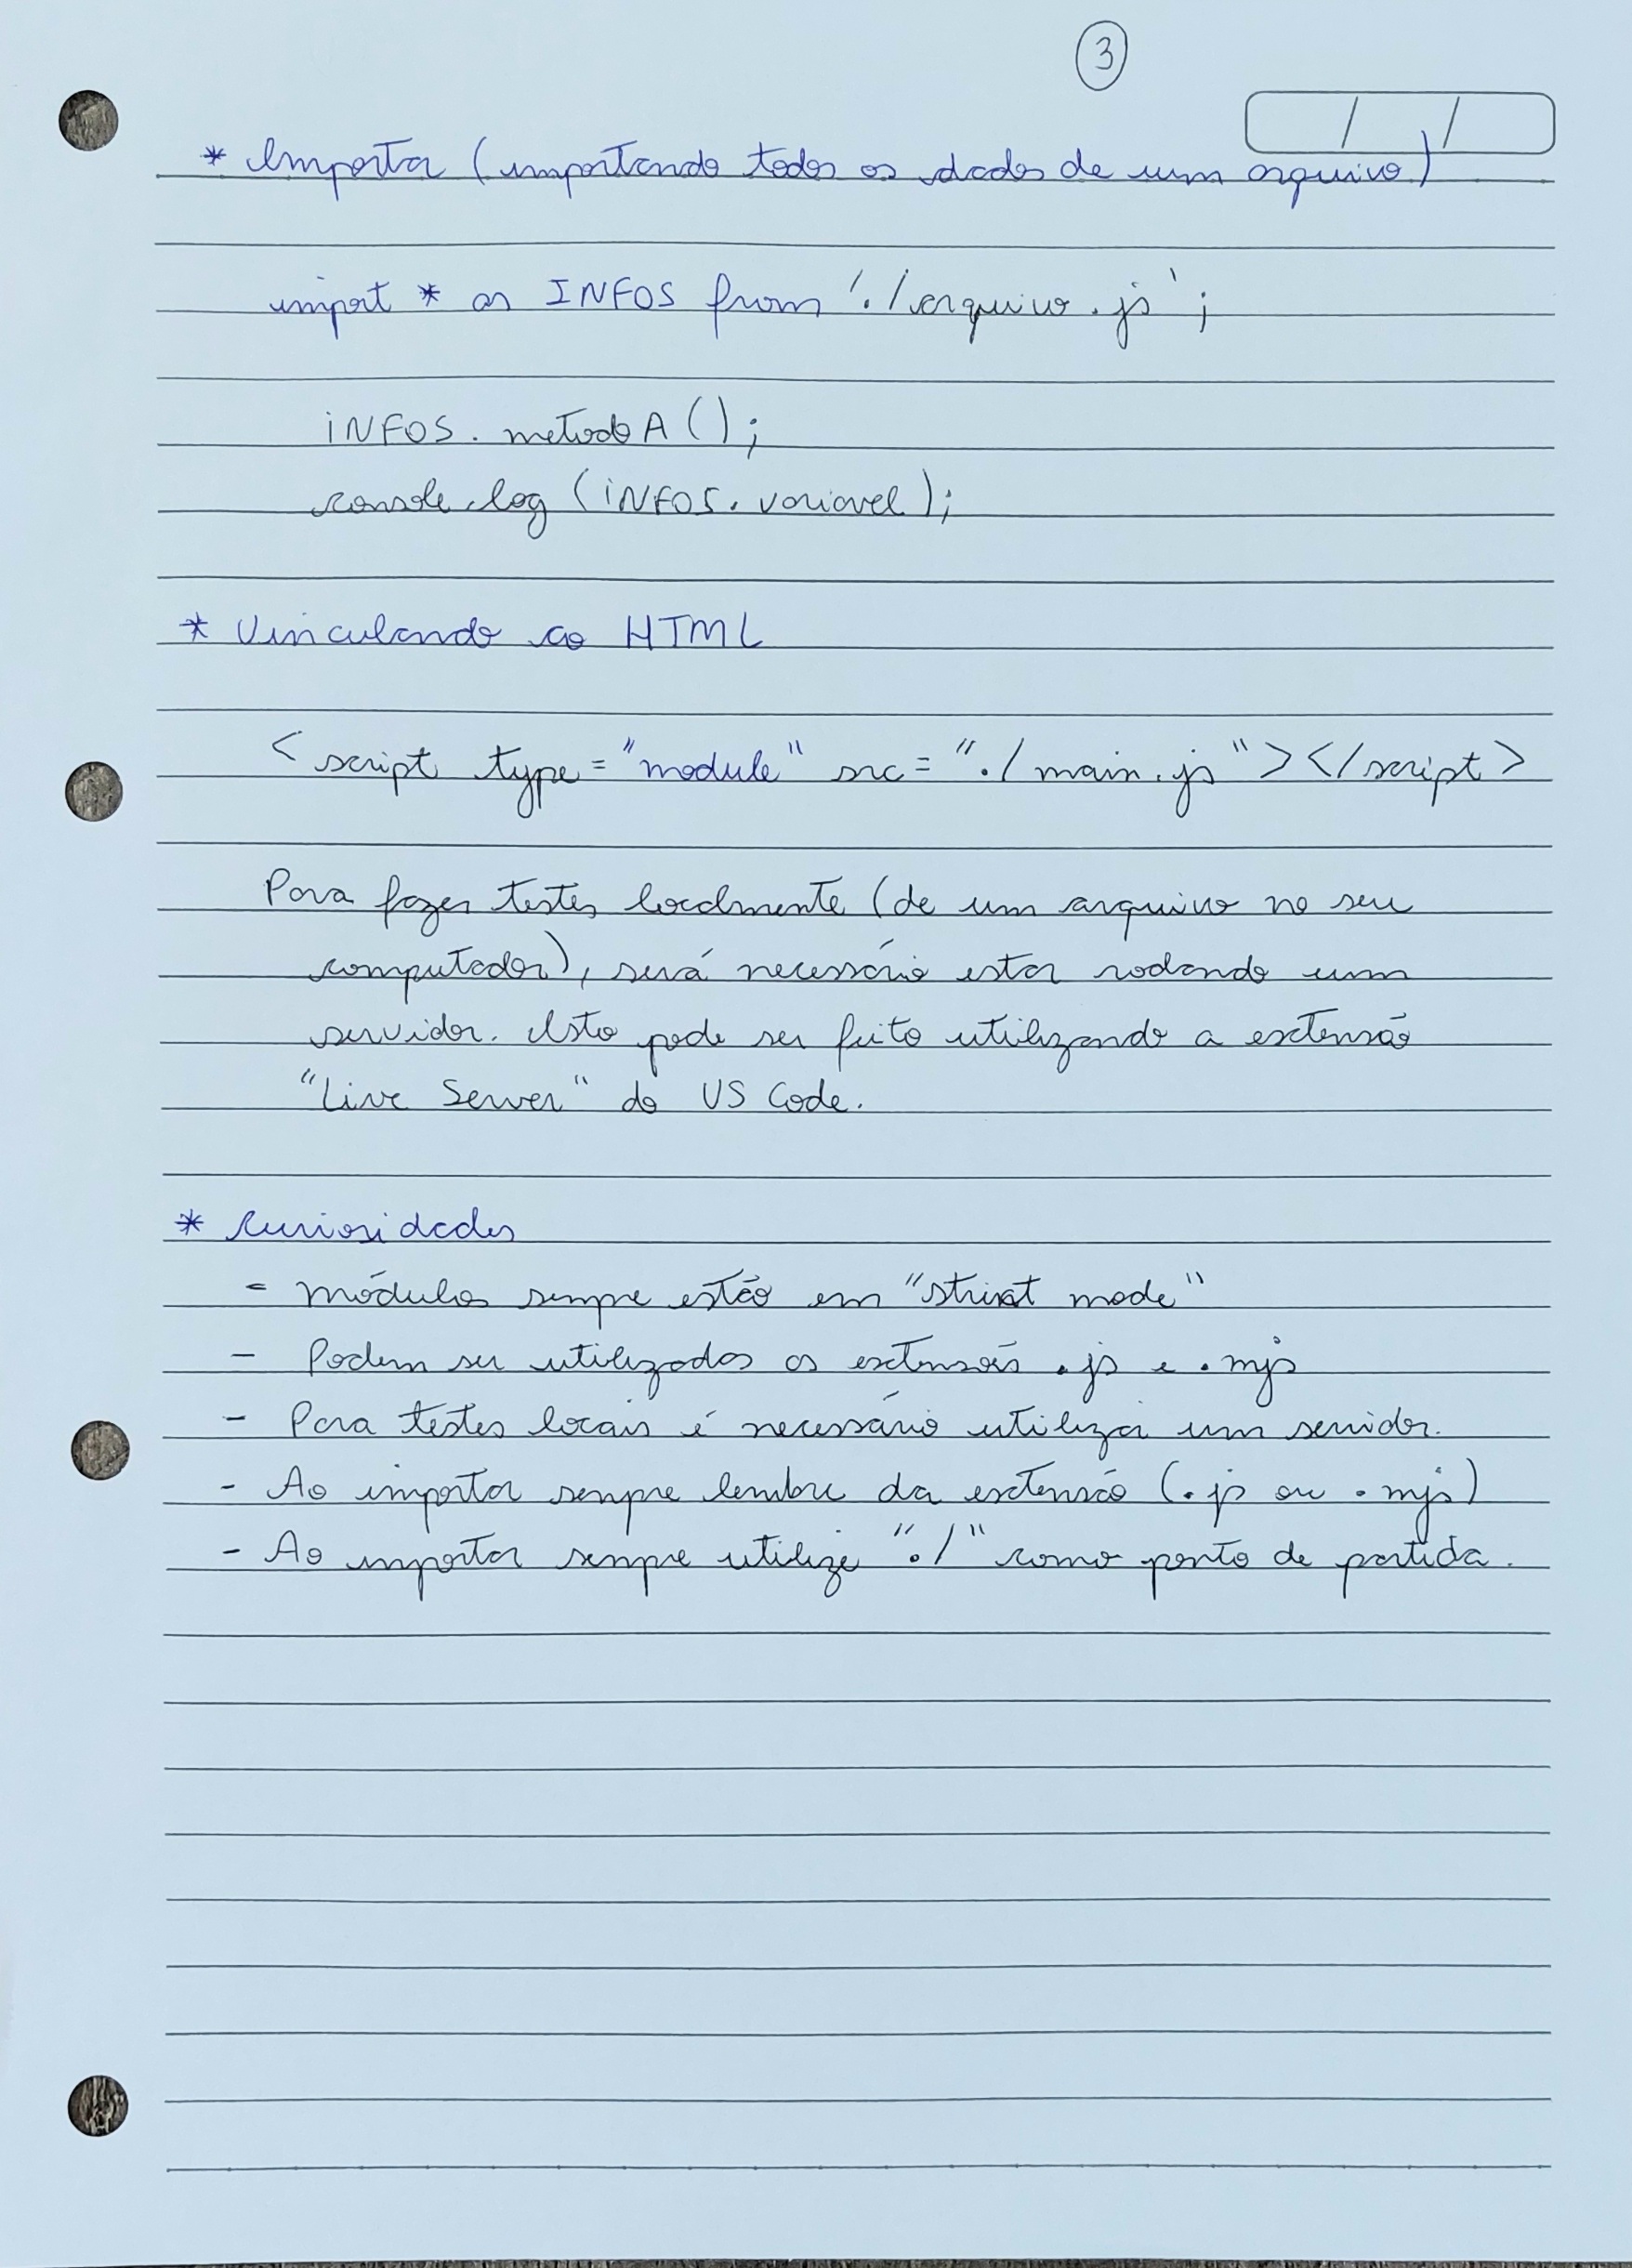 3
/ /
* Importar (importando todos os dados de um arquivo)
import * as INFOS from './arquivo.js';
INFOS.metodoA();
console.log(INFOS.variavel);
* Vinculando ao HTML
<script type="module" src="./main.js"></script>
Para fazer testes localmente (de um arquivo no seu
computador), será necessário estar rodando um
servidor. Isto pode ser feito utilizando a extensão
"Live Server" do VS Code.
* Curiosidades
- Módulos sempre estão em "strict mode"
- Podem ser utilizados as extensões .js e .mjs
- Para testes locais é necessário utilizar um servidor.
- Ao importar sempre lembre da extensão (.js ou .mjs)
- Ao importar sempre utilize "./" como ponto de partida.